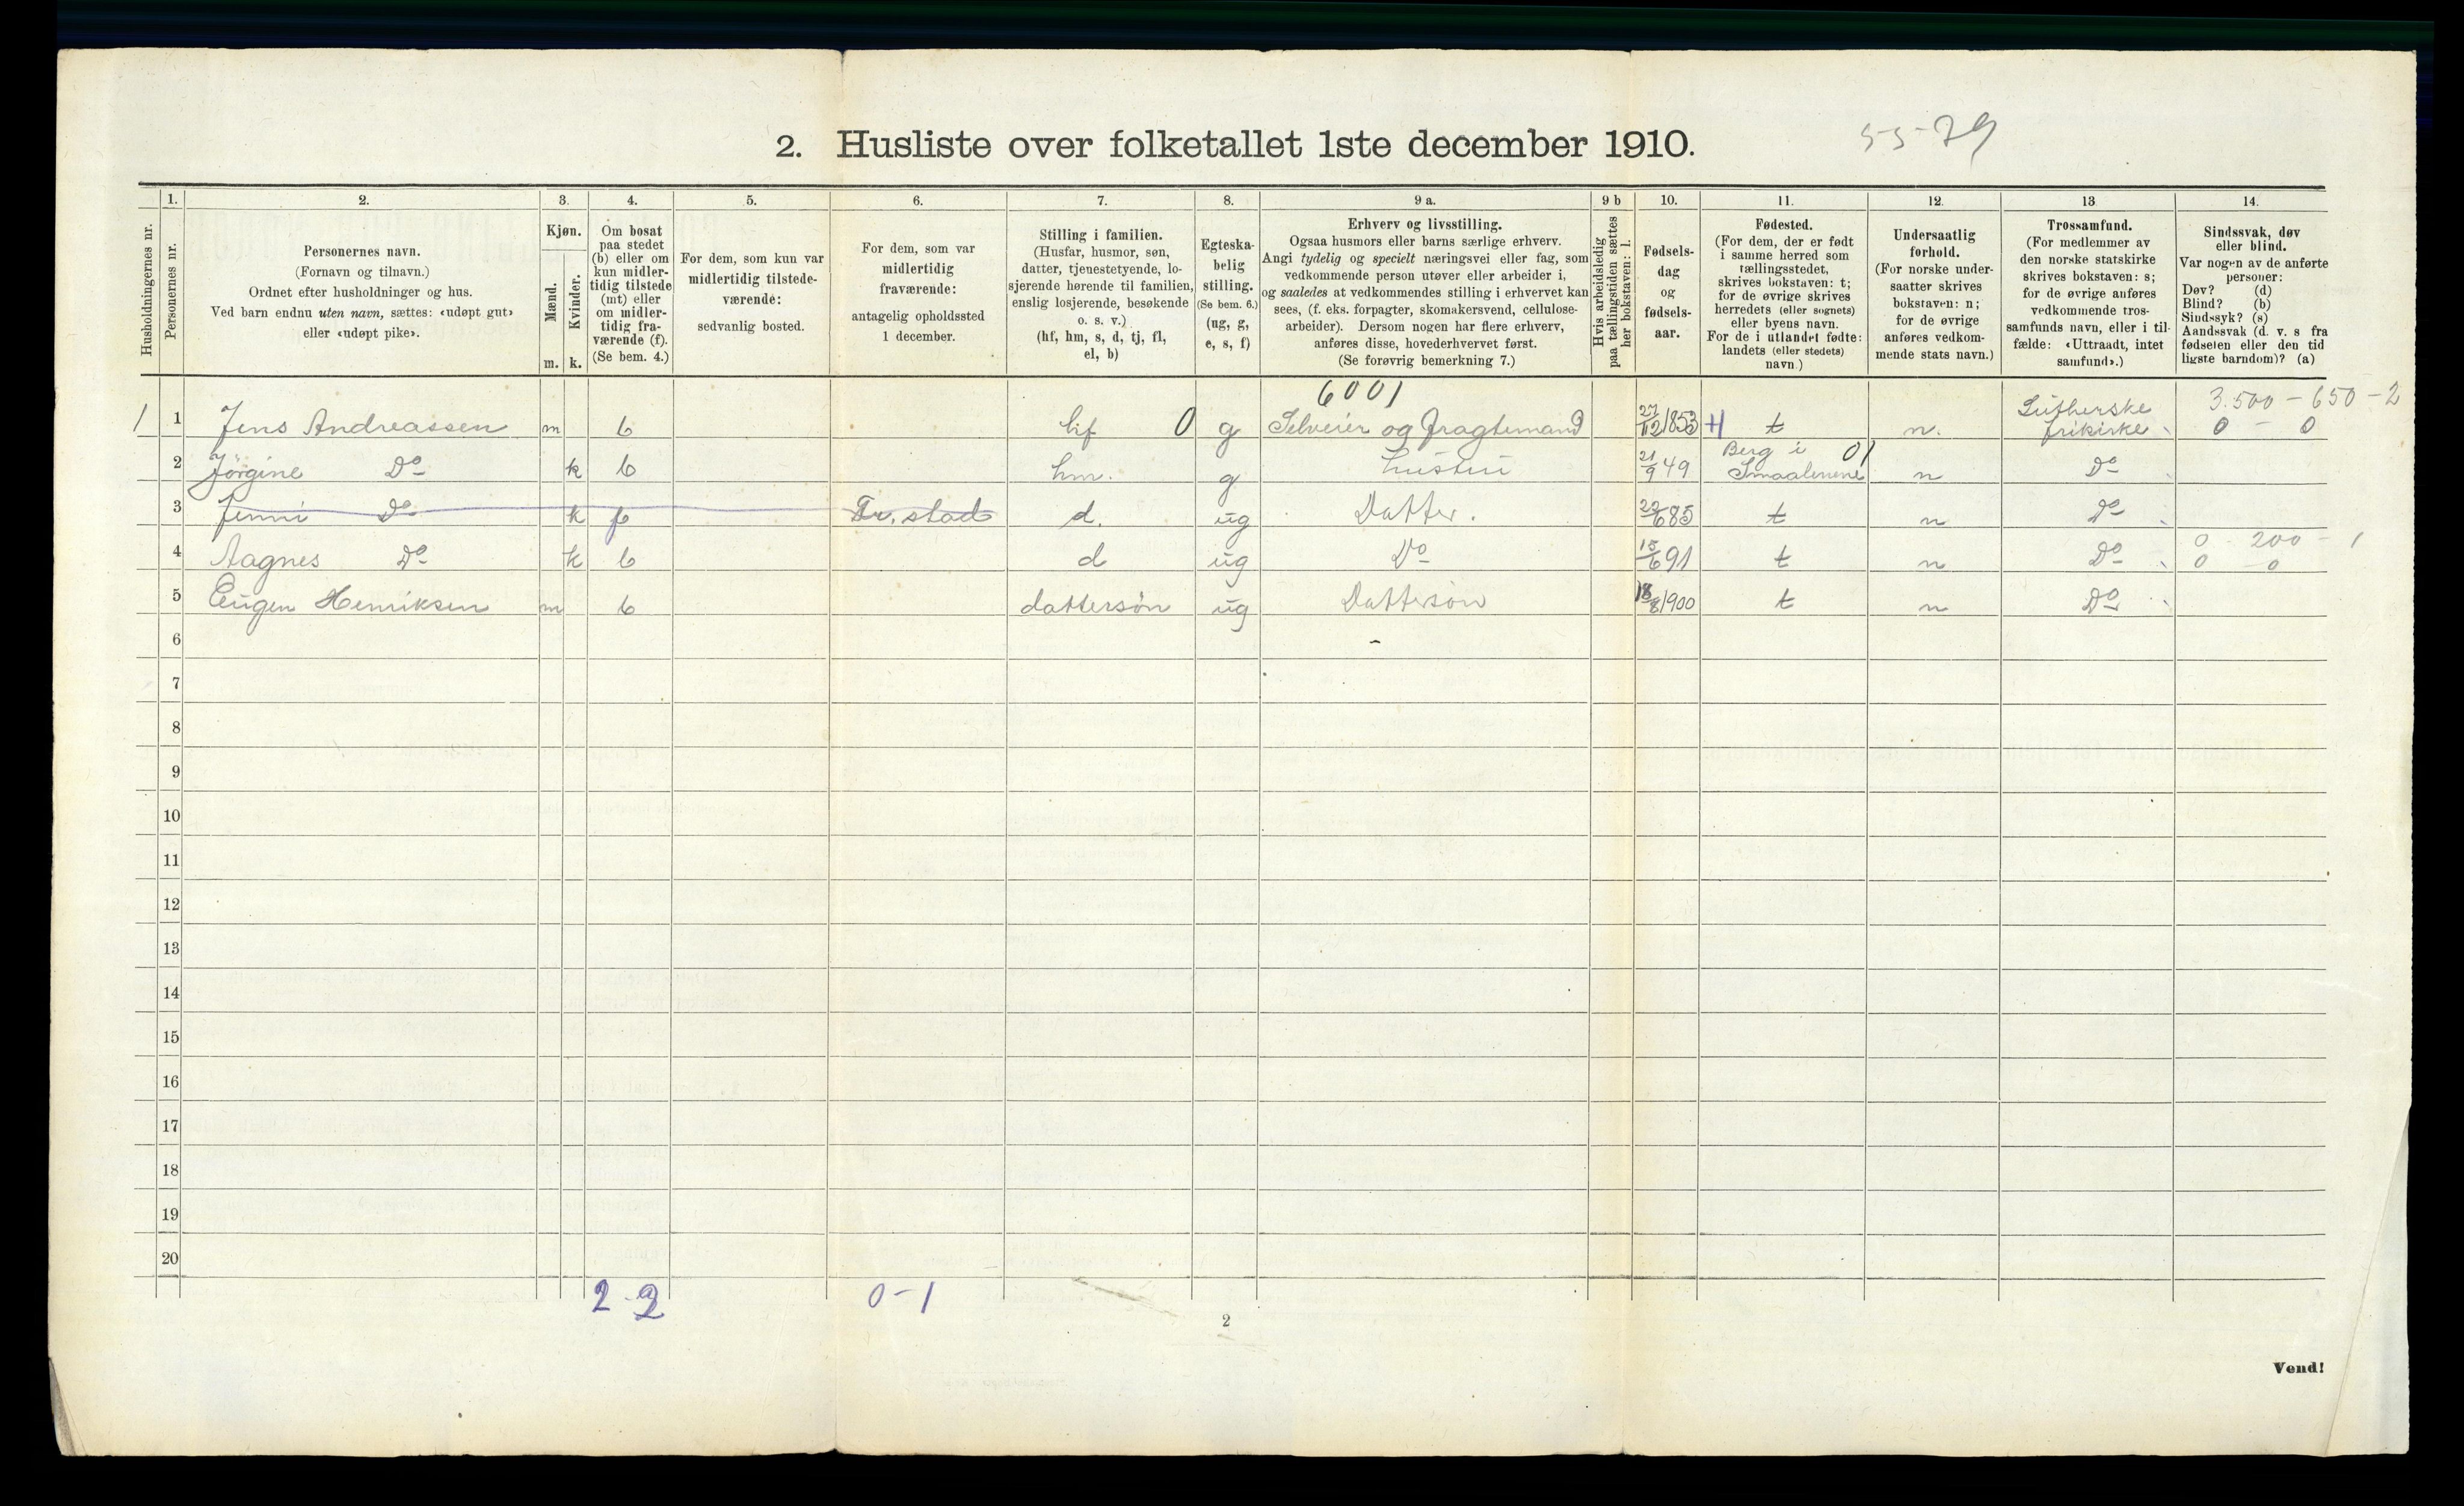 2. Husliste over folketallet 1ste december 1910.
55-79
Husholdningernes nr.
1.
Personernes nr.
2.
Personernes navn.
(Fornavn og tilnavn.)
Ordnet efter husholdninger og hus.
Ved barn endnu uten navn, sættes: «udøpt gut»
eller «udøpt pike».
3.
Kjøn.
Mænd.
m.
Kvinder.
k.
4.
Om bosat
paa stedet
(b) eller om
kun midler-
tidig tilstede
(mt) eller
om midler-
tidig fra-
værende (f).
(Se bem. 4.)
5.
For dem, som kun var
midlertidig tilstede-
værende:
sedvanlig bosted.
6.
For dem, som var
midlertidig
fraværende:
antagelig opholdssted
1 december.
7.
Stilling i familien.
(Husfar, husmor, søn,
datter, tjenestetyende, lo-
sjerende hørende til familien,
enslig losjerende, besøkende
o. s. v.)
(hf, hm, s, d, tj, fl,
el, b)
8.
Egteska-
belig
stilling.
(Se bem. 6.)
(ug, g,
e, s, f)
9 a.
Erhverv og livsstilling.
Ogsaa husmors eller barns særlige erhverv.
Angi tydelig og specielt næringsvei eller fag, som
vedkommende person utøver eller arbeider i,
og saaledes at vedkommendes stilling i erhvervet kan
sees, (f. eks. forpagter, skomakersvend, cellulose-
arbeider). Dersom nogen har flere erhverv,
anføres disse, hovederhvervet først.
(Se forøvrig bemerkning 7.)
9 b
Hvis arbeidsledig
paa tællingstiden sættes
her bokstaven: l.
10.
Fødsels-
dag
og
fødsels-
aar.
11.
Fødested.
(For dem, der er født
i samme herred som
tællingsstedet,
skrives bokstaven: t;
for de øvrige skrives
herredets (eller sognets)
eller byens navn.
For de i utlandet fødte:
landets (eller stedets)
navn.)
12.
Undersaatlig
forhold.
(For norske under-
saatter skrives
bokstaven: n;
for de øvrige
anføres vedkom-
mende stats navn.)
13
Trossamfund.
(For medlemmer av
den norske statskirke
skrives bokstaven: s;
for de øvrige anføres
vedkommende tros-
samfunds navn, eller i til-
fælde: «Uttraadt, intet
samfund».)
14.
Sindssvak, døv
eller blind.
Var nogen av de anførte
personer:
Døv? (d)
Blind? (b)
Sindssyk? (s)
Aandssvak (d. v. s fra
fødselen eller den tid
ligste barndom)? (a)
6001
3.500 - 650 - 2
1 1 Jens Andreassen m b hf 0 g Selveier og fragtemand 27/12 1853 H t n. Lutherske frikirke 0 - 0
2 Jörgine Do k b hm. g hustru 21/9 49 Berg i Smaalenene 01 n Do
3 Jenni Do k f Fr. stad d. ug Datter. 22/6 85 t n Do
0 - 200 - 1
4 Aagnes Do k b d ug Do 15/6 91 t n Do 0 - 0
5 Eugen Henriksen m b dattersøn ug Dattersøn 18/8 1900 t n Do
6
7
8
9
10
11
12
13
14
15
16
17
18
19
20
2 - 2
0 - 1
2
Vend!